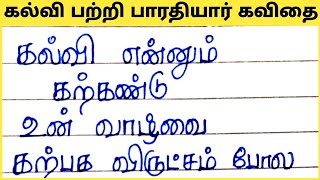 கல்வி பற்றி பாரதியார் கவிதை
கல்வி என்னும்
கற்கண்டு
உன் வாழ்வை
கற்பக விருட்சம் போல